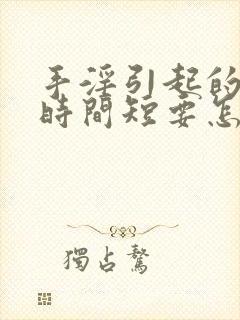 手淫引起的
時間短要怎
獨占鰲